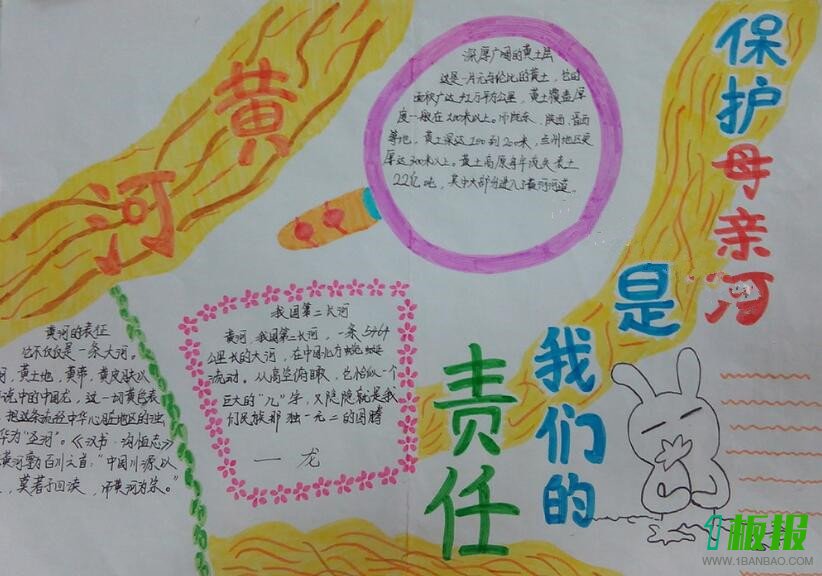 黄河
保护母亲河
是
我们的
责任
深厚广阔的黄土层
这是一片无与伦比的黄土,它的
面积广达42万平方公里,黄土覆盖厚
度一般在100米以上。陇东、陕西、晋西
等地,黄土深达100到200米,兰州地区更
厚达300米以上。黄土高原每年流失表土
22亿吨,其中大部分进入了黄河河道。
我国第二长河
黄河,我国第二长河,一条5464
公里长的大河,在中国北方蜿蜒
流动。从高空俯瞰,它恰似一个
巨大的“几”字,又隐隐就是我
们民族那独一无二的图腾
一龙
黄河的表征
它不仅仅是一条大河。
河,黄土地,黄帝,黄皮肤以
说中的中国龙,这一切黄色表
把这条流经中华心脏地区的浊
华为“四渎”。《汉书·沟恤志》
黄河尊为百川之首:“中国川源以
,莫著于四渎,而黄河为宗。”
1板报
WWW.1BANBAO.COM